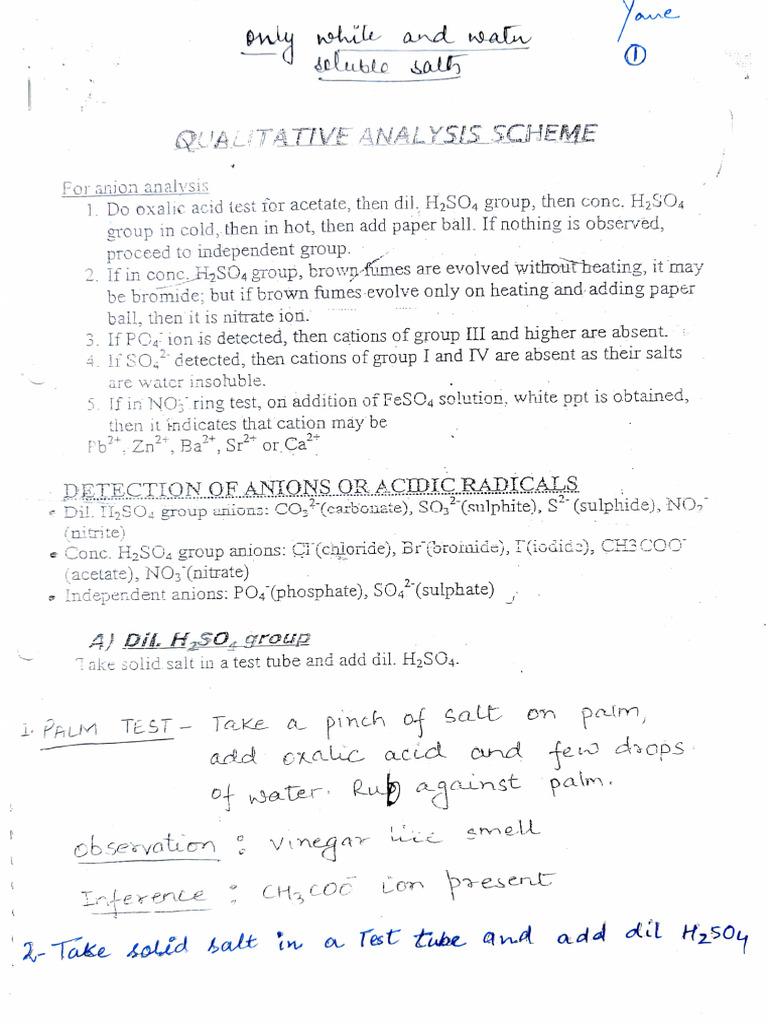 only white and water
soluble salts
①
QUALITATIVE ANALYSIS SCHEME
For anion analysis
1. Do oxalic acid test for acetate, then dil. H₂SO₄ group, then conc. H₂SO₄
group in cold, then in hot, then add paper ball. If nothing is observed,
proceed to independent group.
2. If in conc. H₂SO₄ group, brown fumes are evolved without heating, it may
be bromide; but if brown fumes evolve only on heating and adding paper
ball, then it is nitrate ion.
3. If PO₄⁻ ion is detected, then cations of group III and higher are absent.
4. If SO₄²⁻ detected, then cations of group I and IV are absent as their salts
are water insoluble.
5. If in NO₃⁻ ring test, on addition of FeSO₄ solution, white ppt is obtained,
then it indicates that cation may be
Pb²⁺, Zn²⁺, Ba²⁺, Sr²⁺ or Ca²⁺
DETECTION OF ANIONS OR ACIDIC RADICALS
• Dil. H₂SO₄ group anions: CO₃²⁻(carbonate), SO₃²⁻(sulphite), S²⁻ (sulphide), NO₂⁻
(nitrite)
• Conc. H₂SO₄ group anions: Cl⁻(chloride), Br⁻(bromide), I⁻(iodide), CH3COO⁻
(acetate), NO₃⁻(nitrate)
• Independent anions: PO₄⁻(phosphate), SO₄²⁻(sulphate)
A) Dil. H₂SO₄ group
Take solid salt in a test tube and add dil. H₂SO₄.
1. PALM TEST - Take a pinch of salt on palm,
add oxalic acid and few drops
of water. Rub against palm.
Observation : vinegar like smell
Inference : CH₃COO⁻ ion present
2- Take solid salt in a Test tube and add dil H₂SO₄